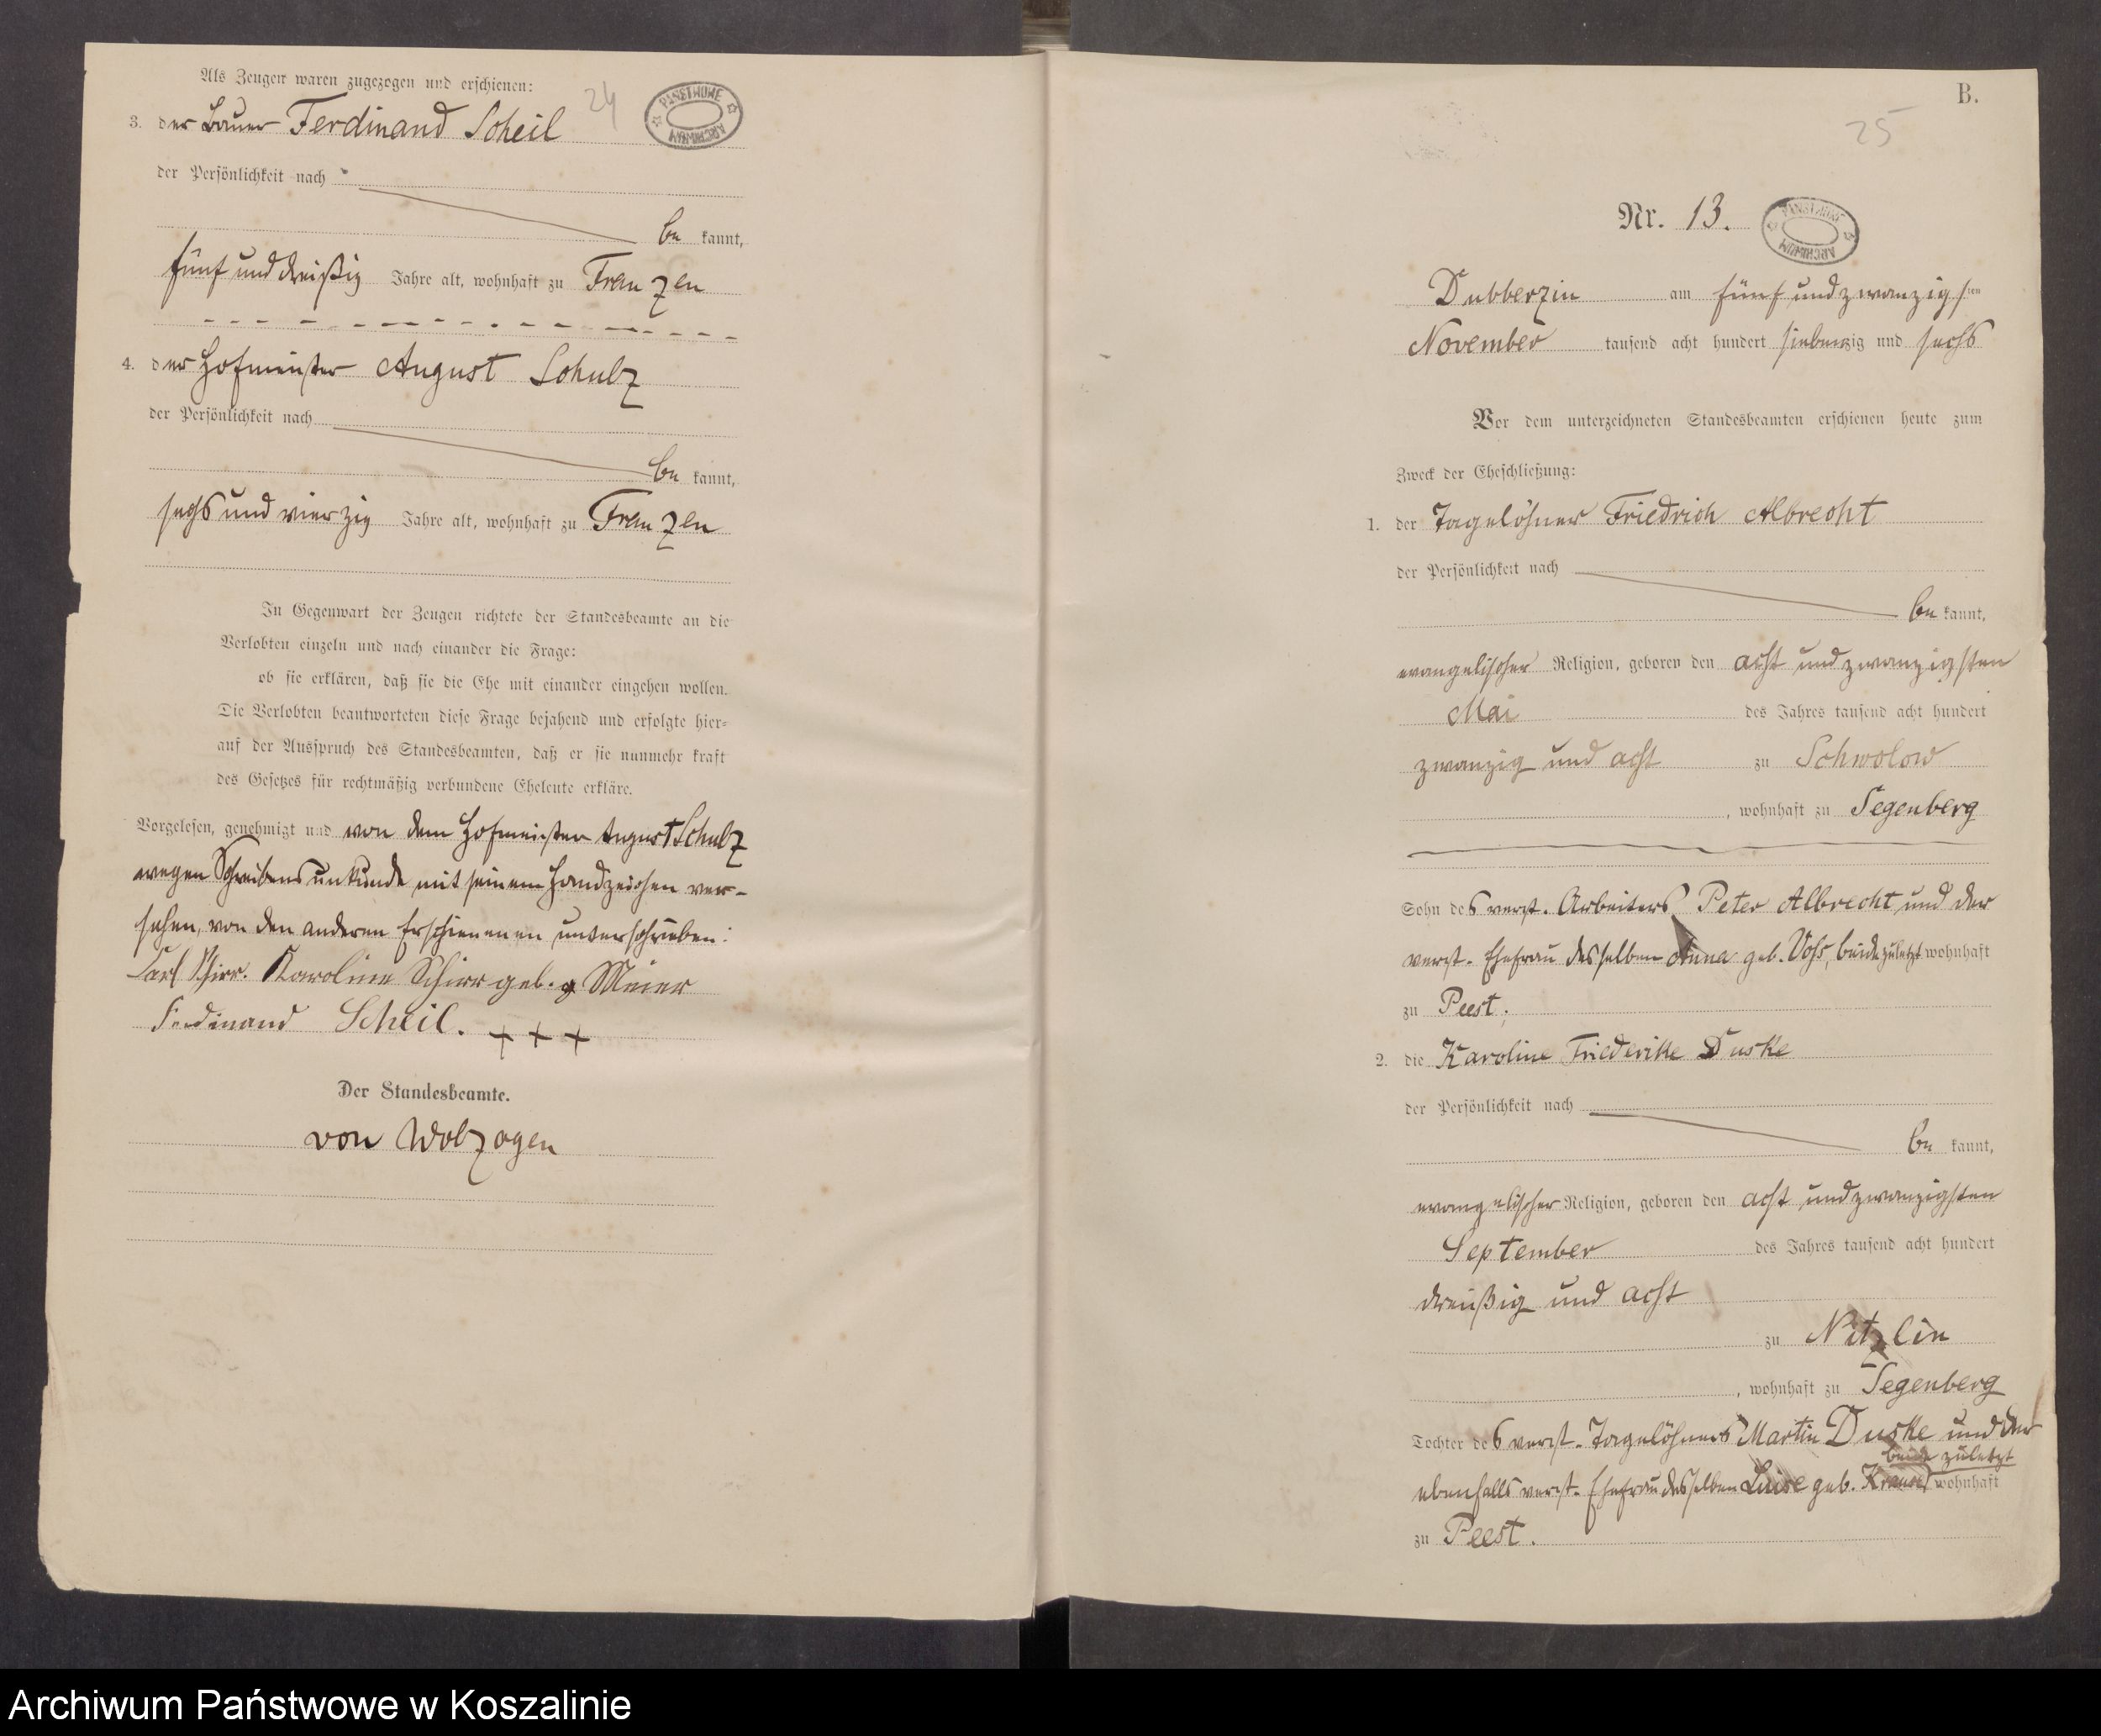 Als Zeugen waren zugezogen und erschienen:
24
PAŃSTWOWE ARCHIWUM
3. der Bauer Ferdinand Scheil
der Persönlichkeit nach
be kannt,
fünf und dreißig Jahre alt, wohnhaft zu Franzen
4. der Hofmeister August Schulz
der Persönlichkeit nach
be kannt,
sechs und vierzig Jahre alt, wohnhaft zu Franzen
In Gegenwart der Zeugen richtete der Standesbeamte an die
Verlobten einzeln und nach einander die Frage:
ob sie erklären, daß sie die Ehe mit einander eingehen wollen.
Die Verlobten beantworteten diese Frage bejahend und erfolgte hier-
auf der Ausspruch des Standesbeamten, daß er sie nunmehr kraft
des Gesetzes für rechtmäßig verbundene Eheleute erkläre.
Vorgelesen, genehmigt und von dem Hofmeister August Schulz
wegen Schreibensunkunde mit seinem Handzeichen ver-
sehen, von den anderen Erschienenen unterschrieben:
Carl Schirr. Karoline Schirr geb. Meier
Ferdinand Scheil. + + +
Der Standesbeamte.
von Wolzogen
B.
25
Nr. 13.
PAŃSTWOWE ARCHIWUM
Dubberzin am fünf und zwanzigsten
November tausend acht hundert siebenzig und sechs
Vor dem unterzeichneten Standesbeamten erschienen heute zum
Zweck der Eheschließung:
1. der Tagelöhner Friedrich Albrecht
der Persönlichkeit nach
be kannt,
evangelischer Religion, geboren den acht und zwanzigsten
Mai des Jahres tausend acht hundert
zwanzig und acht zu Schwolow
, wohnhaft zu Segenberg
Sohn des verst. Arbeiters Peter Albrecht und der
verst. Ehefrau desselben Anna geb. Voß, beide zuletzt wohnhaft
zu Peest.
2. die Karoline Friederike Duske
der Persönlichkeit nach
be kannt,
evangelischer Religion, geboren den acht und zwanzigsten
September des Jahres tausend acht hundert
dreißig und acht
zu Nitzlin
, wohnhaft zu Segenberg
Tochter des verst. Tagelöhners Martin Duske und der
beide zuletzt
ebenfalls verst. Ehefrau desselben Luise geb. Krause wohnhaft
zu Peest.
Archiwum Państwowe w Koszalinie